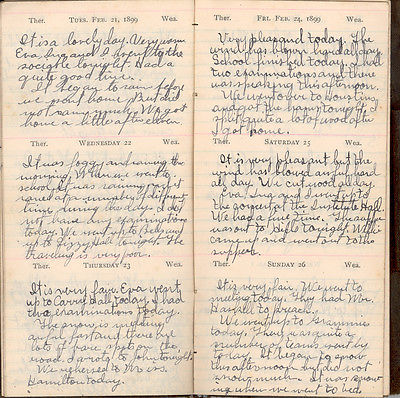 Ther. TUES. FEB. 21, 1899 Wea.
It is a lovely day. Very warm
Eva, Eva and I went to the
sociable tonight. Had a
quite good time.
It began to rain before
we came home but did
not rain much. We got
home a little after eleven.
Ther. WEDNESDAY 22 Wea.
It was foggy and raining this
morning. When we went to
school it was raining and it
rained at a number of different
times during the day. I did
not have any examinations
today. We went up to
up to Lizzy Hall tonight. The
traveling is very poor.
Ther. THURSDAY 23 Wea.
It is very fair. Eva went
up to Carry's all today. I had
two examinations today.
The snow is melting
awful fast and there are
lots of bare spots on the
road. I wrote to John tonight.
We rehearsed to Mrs.
Hamilton today.
Ther. FRI. FEB. 24, 1899 Wea.
Very pleasant today. The
wind has blown hard all day.
School finished today. I had
two examinations and there
was speaking this afternoon.
We went over to
and got the harps tonight. I
split quite a lot of wood after
I got home.
Ther. SATURDAY 25 Wea.
It is very pleasant but the
wind has blown awful hard
all day. We cut wood all day
Eva, and I went up to
the concert at the Institute Hall.
We had a fine time. The
was out to Hills tonight. Willie
came up and went out to the
supper.
Ther. SUNDAY 26 Wea.
It is very fair. We went to
meeting today. They had Mr.
to preach.
We went up to Grammies
today. There was quite a
number of teams went by
today. It began to snow
this afternoon but did not
snow much. It was snow
ing when we went to bed.